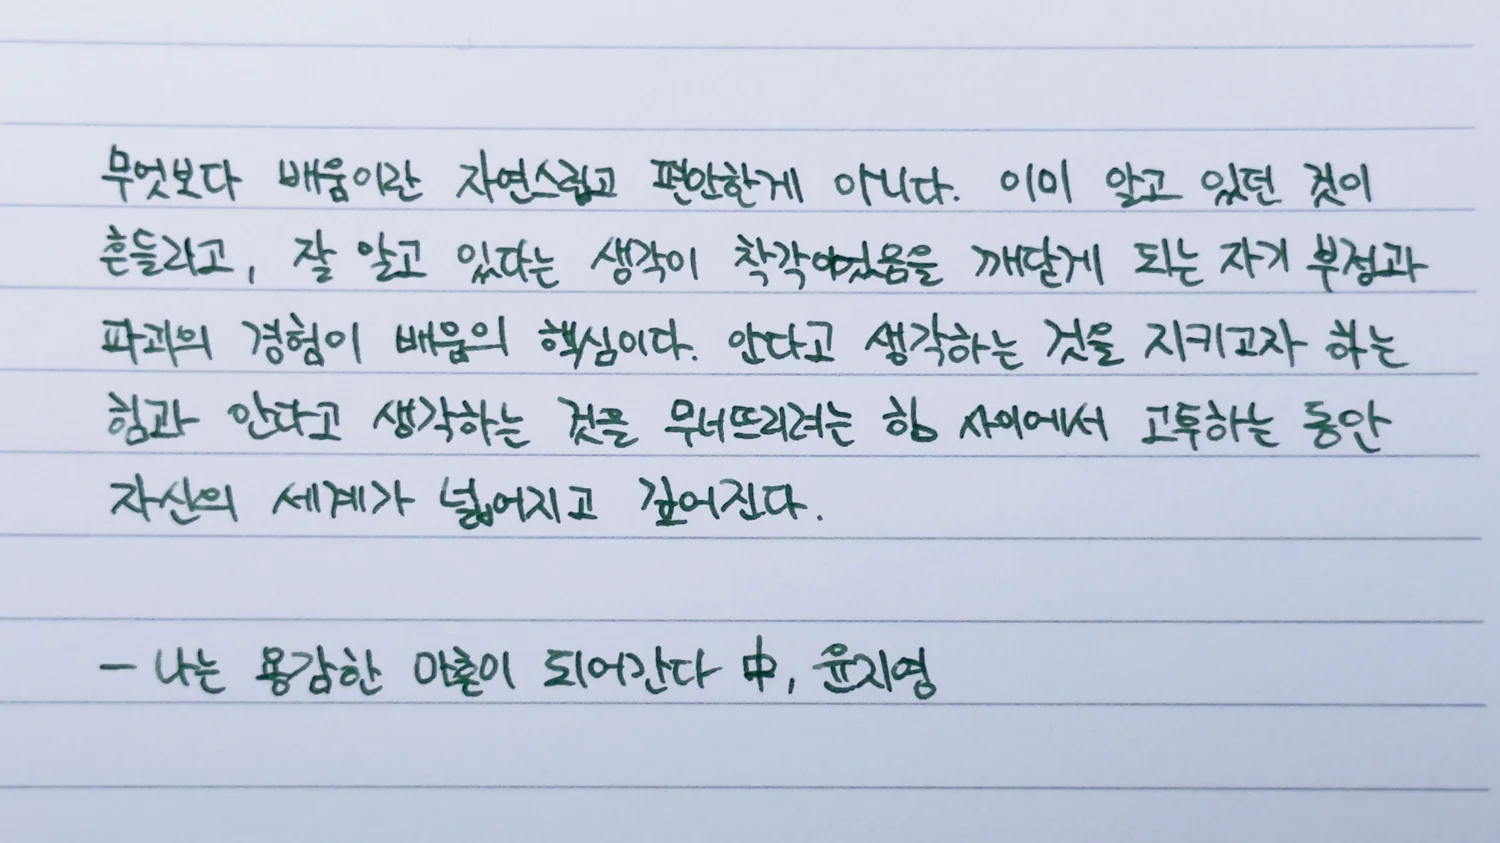 무엇보다 배움이란 자연스럽고 편안한게 아니다. 이미 알고 있던 것이
흔들리고, 잘 알고 있다는 생각이 착각이었음을 깨닫게 되는 자기 부정과
파괴의 경험이 배움의 핵심이다. 안다고 생각하는 것을 지키고자 하는
힘과 안다고 생각하는 것을 무너뜨리려는 힘 사이에서 고투하는 동안
자신의 세계가 넓어지고 깊어진다.
- 나는 용감한 마흔이 되어간다 中, 윤지영